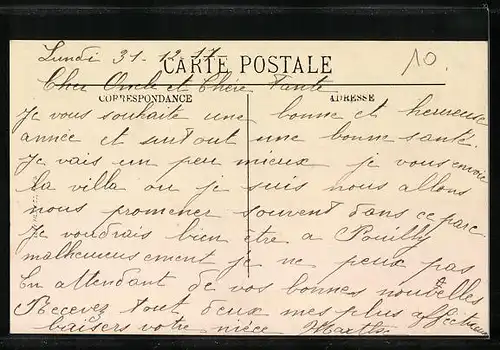 Lundi 31-12-17
10.
CARTE POSTALE
Cher Oncle et Chère Tante
CORRESPONDANCE
ADRESSE
Je vous souhaite une bonne et heureuse
année et surtout une bonne santé.
Je vais un peu mieux je vous envoie
la villa ou je suis nous allons
nous promener souvent dans ce parc
Je voudrais bien être a Pouilly
malheureusement je ne peux pas
En attendant de vos bonnes nouvelles
Recevez tout deux mes plus affectueux
baisers votre nièce